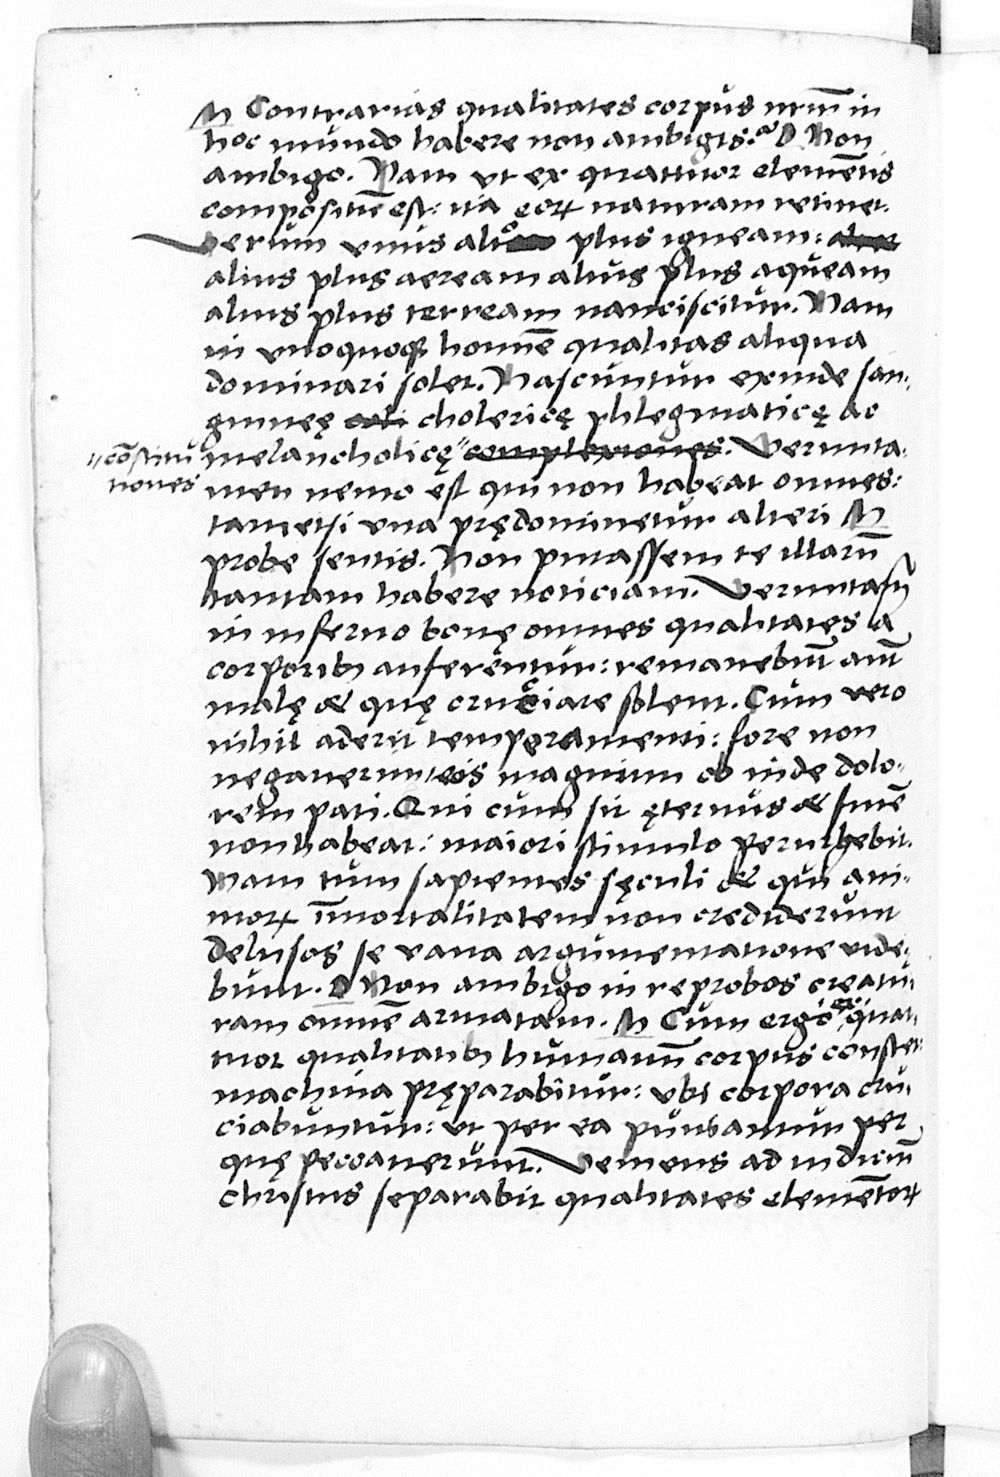 M Contrarias qualitates corpus nr̄m in
hoc mundo habere non ambigis? D Non
ambigo. Nam vt ex quattuor elemētis
compositū est: ita eoꝝ naturam retinet.
Verum vnus alio plus igneam:
alius plus aeream alius plus aqueam
alius plus terream nanciscitur. Nam
in vnoquoqꝫ homīe qualitas aliqua
dominari solet. Nascuntur exinde san-
guineę cholericę phlegmaticę ac
melancholicę " complexiones. Verunta-
"cōstitu
tiones
men nemo est qui non habeat omnes:
tametsi vna prędominetur alteri M
probe sentis. Non putassem te illarū
tantam habere noticiam. Verunta
in inferno bonę omnes qualitates a
corporibꝫ auferentur: remanebūt aūt
malę & quę cruciare solent. Cum vero
nihil aderit temperamenti: fore non
negauerim, eos magnum ob inde dolo-
rem pati. Qui cum sit ęternus & finē
non habeat: maiori stimulo perurgebit.
Nam tum sapientes sęculi & qui ani-
moꝝ īmortalitatem non crediderunt
delusos se vana argumentatione vide-
bunt. D Non ambigo in reprobos creatu-
ram omnē armatam. M Cum ergo ex quat-
tuor qualitatibꝫ humanū corpus constet:
machina pręparabitur: vbi corpora cru-
ciabuntur: vt per ea puniantur per
quę peccauerunt. Veniens ad iudiciū
christus separabit qualitates elemētoꝝ